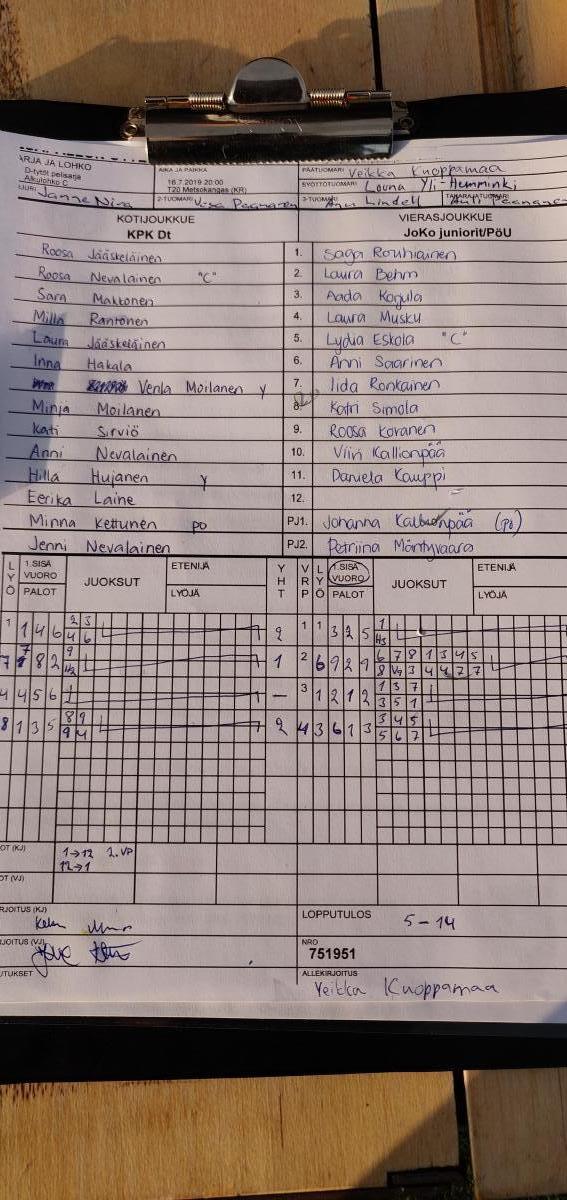 ARJA JA LOHKO
D-tytöt pelisarja
Alkulohko C
AIKA JA PAIKKA
16.7.2019 20:00
T20 Metsokangas (KR)
PÄÄTUOMARI Veikka Kuoppamaa
SYÖTTÖTUOMARI Louna Yli-Hemminki
Janne Niva
2-TUOMARI Vesa Paananen
3-TUOMARI Anu Lindell
KOTIJOUKKUE
VIERASJOUKKUE
KPK Dt
JoKo juniorit/PöU
Roosa Jääskeläinen 1. Saga Rouhiainen
Roosa Nevalainen "C" 2. Laura Behm
Sara Makkonen 3. Aada Kojula
Milla Rantonen 4. Laura Musku
Laura Jääskeläinen 5. Lydia Eskola "C"
Inna Hakala 6. Anni Saarinen
Venla Moilanen Y 7. Iida Ronkainen
Minja Moilanen 8. Katri Simola
Kati Sirviö 9. Roosa Koranen
Anni Nevalainen 10. Viivi Kallionpää
Hilla Hujanen Y 11. Daniela Kauppi
Eerika Laine 12.
Minna Kettunen po PJ1. Johanna Kallionpää (po)
Jenni Nevalainen PJ2. Petriina Mäntyvaara
LYÖ 1.SISÄ VUORO PALOT JUOKSUT ETENIJÄ LYÖJÄ YHT VRP LYÖ 1.SISÄ VUORO PALOT JUOKSUT ETENIJÄ LYÖJÄ
1 1 4 6 2 3 2 1 1 3 2 5 1
4 6 H3
7 1 8 2 9 1 2 6 9 2 9 6 7 8 1 3 4 5
H2 8 1/9 3 4 4 7 7
4 4 5 6 – 3 1 2 1 2 1 3 7
3 5 1
8 1 3 5 8 9 2 4 3 6 1 3 3 4 5
9 4 5 6 7
OT (KJ) 1→12 2.VP
12→1
OT (VJ)
RJOITUS (KJ)
LOPPUTULOS 5-14
RJOITUS (VJ)
NRO
751951
UTUKSET
ALLEKIRJOITUS
Veikka Kuoppamaa